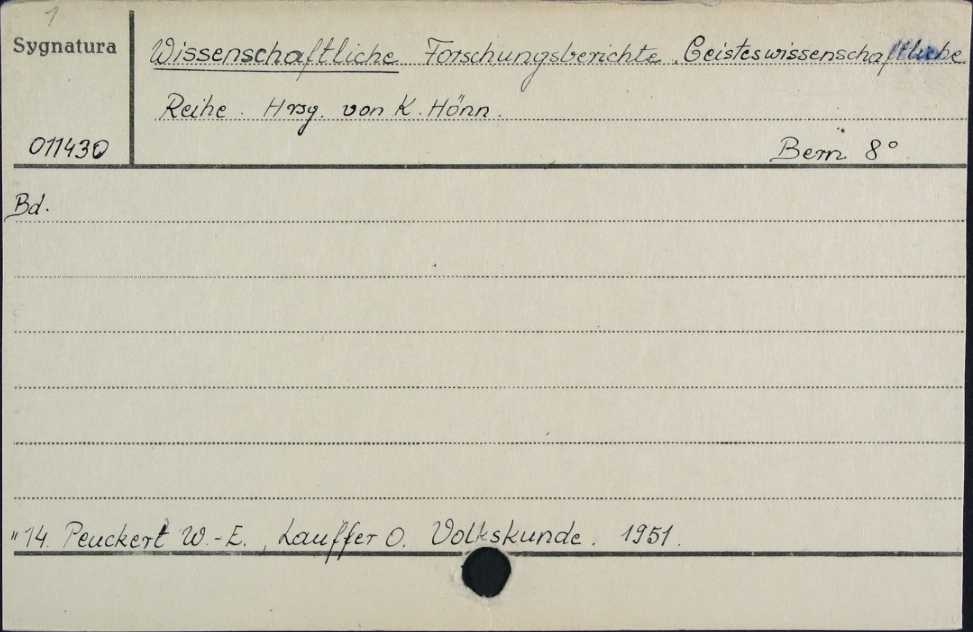 1
Sygnatura
Wissenschaftliche Forschungsberichte. Geisteswissenschaftliche
Reihe. Hrsg. von K. Hönn.
011430
Bern 8°
Bd.
" 14. Peuckert W.-E., Lauffer O. Volkskunde. 1951.